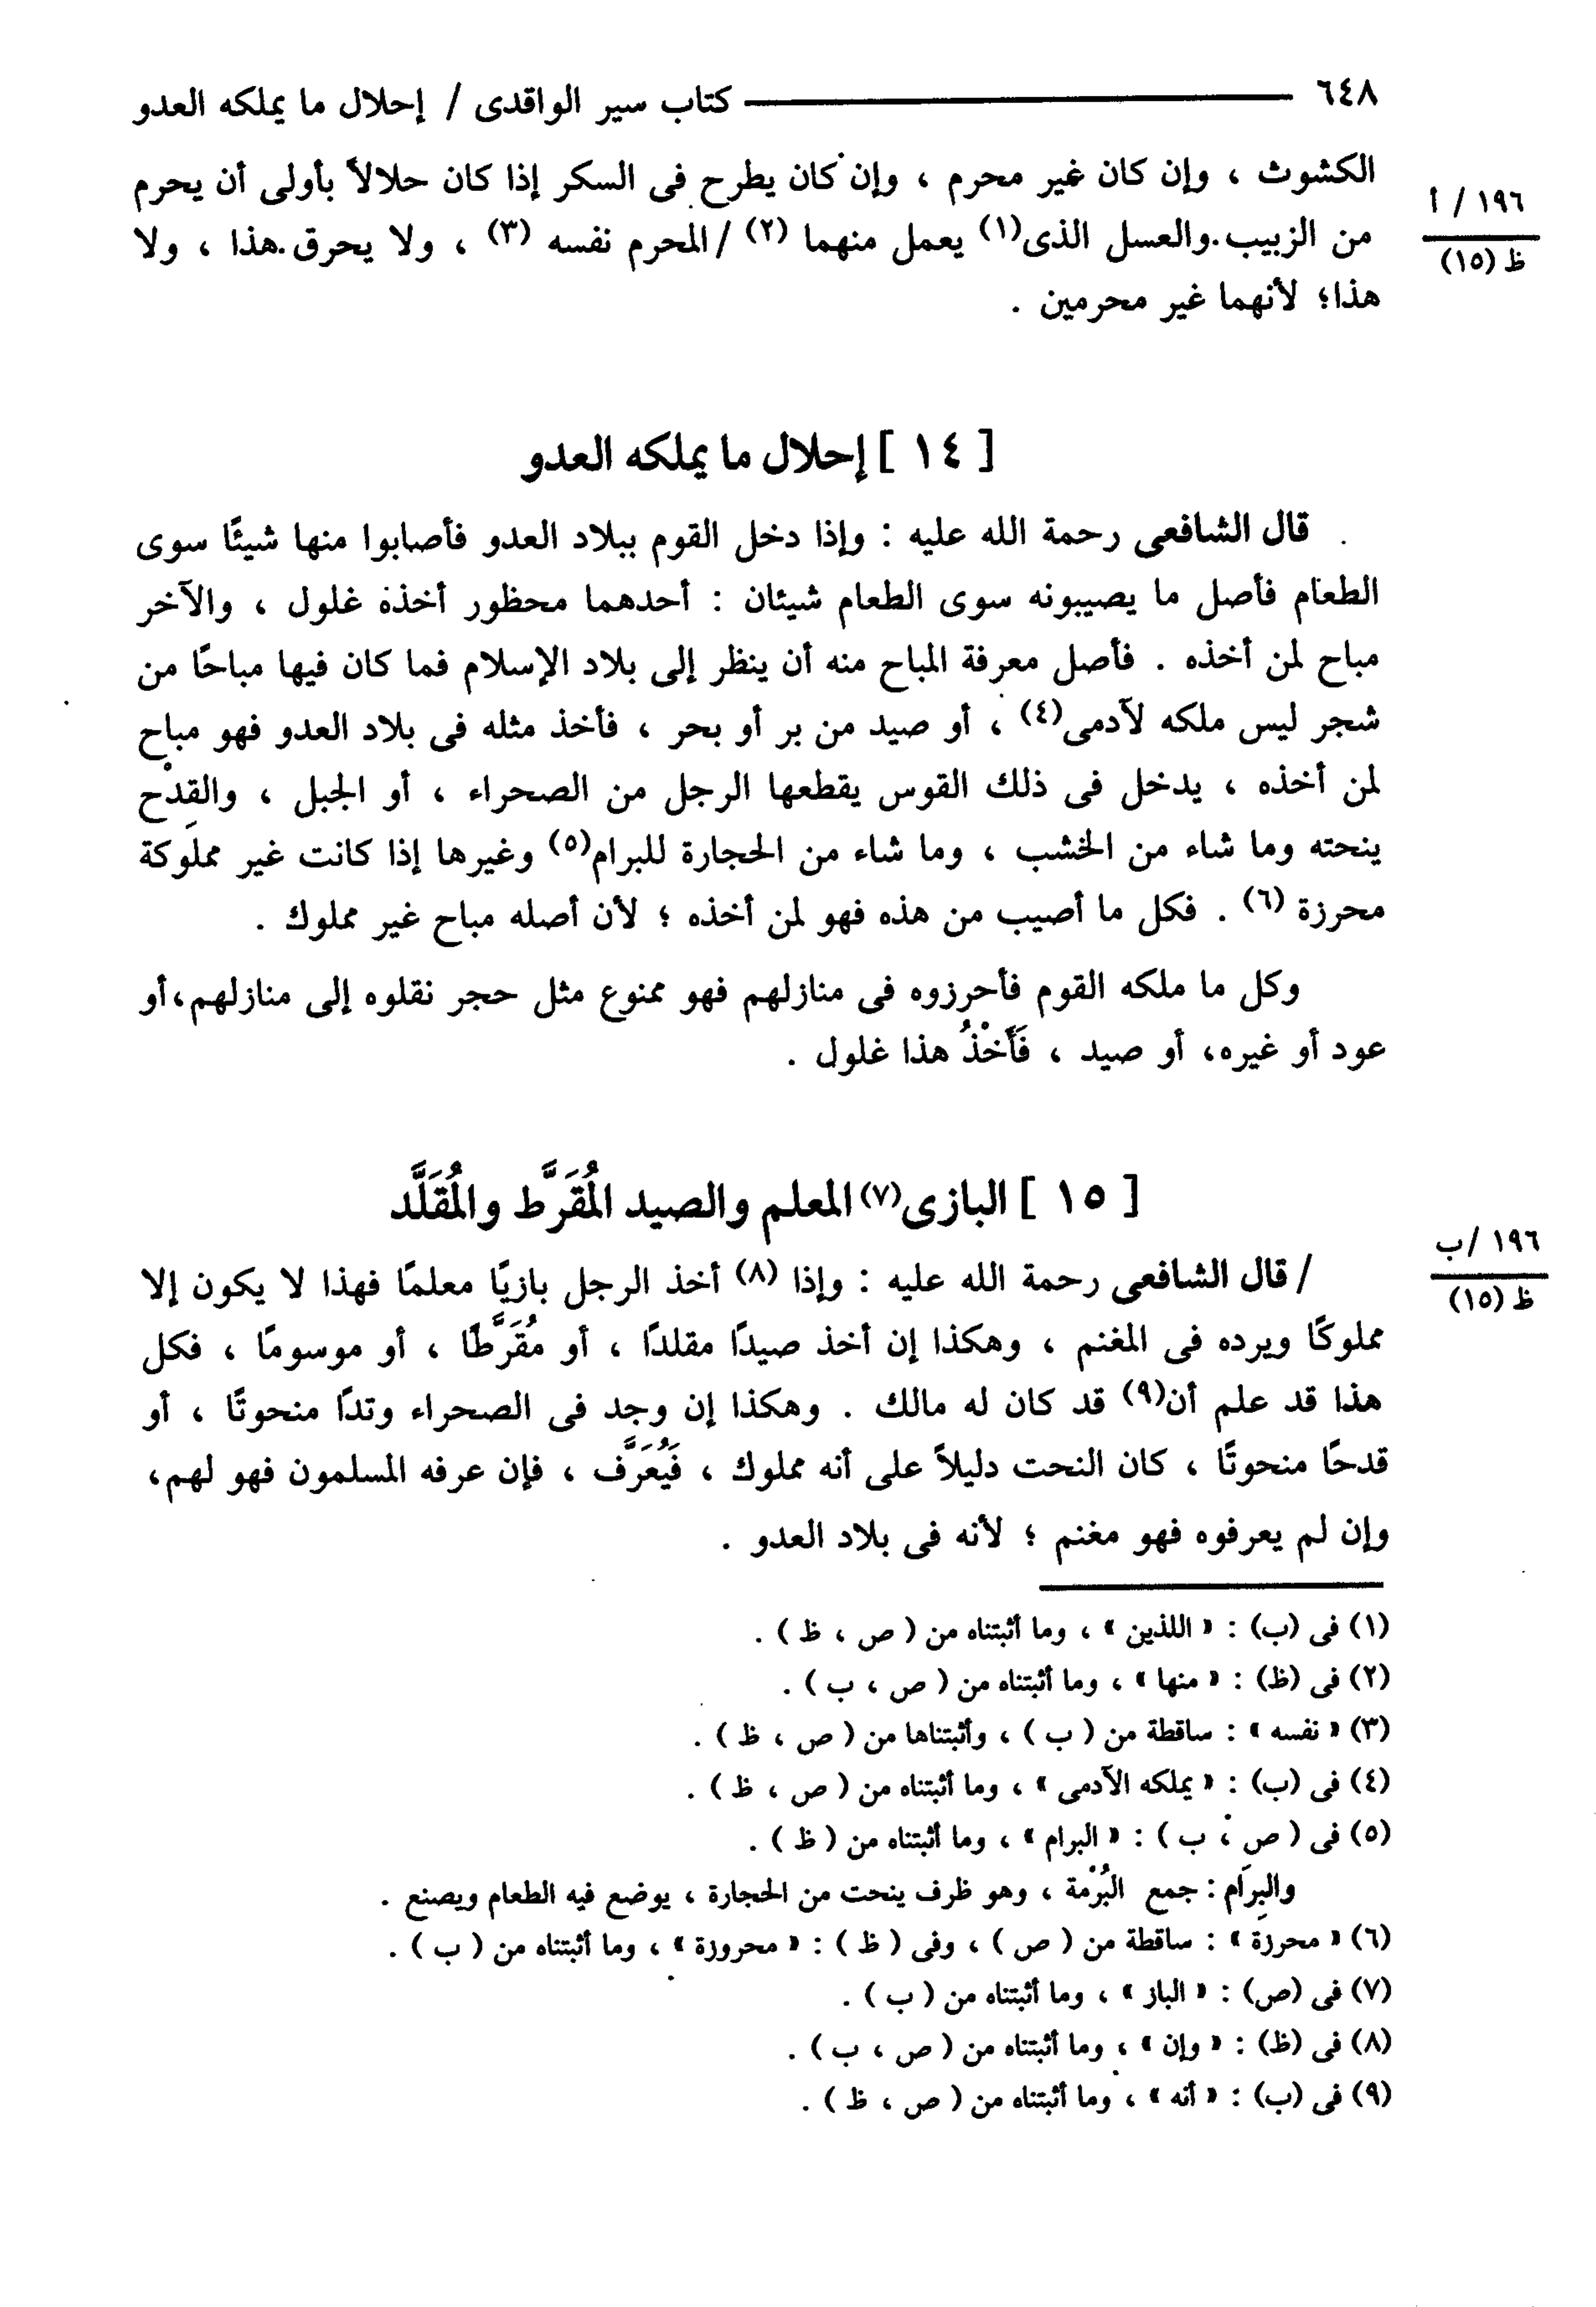 ٦٤٨ ــــــــــــــــــــ كتاب سير الواقدى / إحلال ما يملكه العدو
الكشوث ، وإن كان غير محرم ، وإن كان يطرح فى السكر إذا كان حلالاً بأولى أن يحرم
١٩٦ / أ
ظ (١٥)
من الزبيب.والعسل الذى(١) يعمل منهما (٢) /المحرم نفسه (٣) ، ولا يحرق.هذا ، ولا
هذا؛ لأنهما غير محرمين .
[ ١٤ ] إحلال ما يملكه العدو
قال الشافعى رحمة الله عليه : وإذا دخل القوم ببلاد العدو فأصابوا منها شيئًا سوى
الطعام فأصل ما يصيبونه سوى الطعام شيئان : أحدهما محظور أخذه غلول ، والآخر
مباح لمن أخذه . فأصل معرفة المباح منه أن ينظر إلى بلاد الإسلام فما كان فيها مباحًا من
شجر ليس ملكه لآدمى(٤) ، أو صيد من بر أو بحر ، فأخذ مثله فى بلاد العدو فهو مباح
لمن أخذه ، يدخل فى ذلك القوس يقطعها الرجل من الصحراء ، أو الجبل ، والقِدْح
ينحته وما شاء من الخشب ، وما شاء من الحجارة للبرام(٥) وغيرها إذا كانت غير مملوكة
محرزة (٦) . فكل ما أصيب من هذه فهو لمن أخذه ؛ لأن أصله مباح غير مملوك .
وكل ما ملكه القوم فأحرزوه فى منازلهم فهو ممنوع مثل حجر نقلوه إلى منازلهم،أو
عود أو غيره، أو صيد ، فَأَخْذُ هذا غلول .
[ ١٥ ] البازى(٧) المعلم والصيد المُقَرَّط والمُقَلَّد
١٩٦ /ب
ظ (١٥)
/ قال الشافعى رحمة الله عليه : وإذا (٨) أخذ الرجل بازيًا معلمًا فهذا لا يكون إلا
مملوكًا ويرده فى المغنم ، وهكذا إن أخذ صيدًا مقلدًا ، أو مُقَرَّطًا ، أو موسومًا ، فكل
هذا قد علم أن(٩) قد كان له مالك . وهكذا إن وجد فى الصحراء وتدًا منحوتًا ، أو
قدحًا منحوتًا ، كان النحت دليلاً على أنه مملوك ، فَيُعَرَّف ، فإن عرفه المسلمون فهو لهم،
وإن لم يعرفوه فهو مغنم ؛ لأنه فى بلاد العدو .
(١) فى (ب) : « اللذين » ، وما أثبتناه من ( ص ، ظ ) .
(٢) فى (ظ) : « منها » ، وما أثبتناه من ( ص ، ب ) .
(٣) « نفسه » : ساقطة من ( ب ) ، وأثبتناها من ( ص ، ظ ) .
(٤) فى (ب) : « يملكه الآدمى » ، وما أثبتناه من ( ص ، ظ ) .
(٥) فى ( ص ، ب ) : « البرام » ، وما أثبتناه من ( ظ ) .
والبِرَام : جمع البُرْمة ، وهو ظرف ينحت من الحجارة ، يوضع فيه الطعام ويصنع .
(٦) « محرزة » : ساقطة من ( ص ) ، وفى ( ظ ) : « محروزة » ، وما أثبتناه من ( ب ) .
(٧) فى (ص) : « الباز » ، وما أثبتناه من ( ب ) .
(٨) فى (ظ) : « وإن » ، وما أثبتناه من ( ص ، ب ) .
(٩) فى (ب) : « أنه » ، وما أثبتناه من ( ص ، ظ ) .